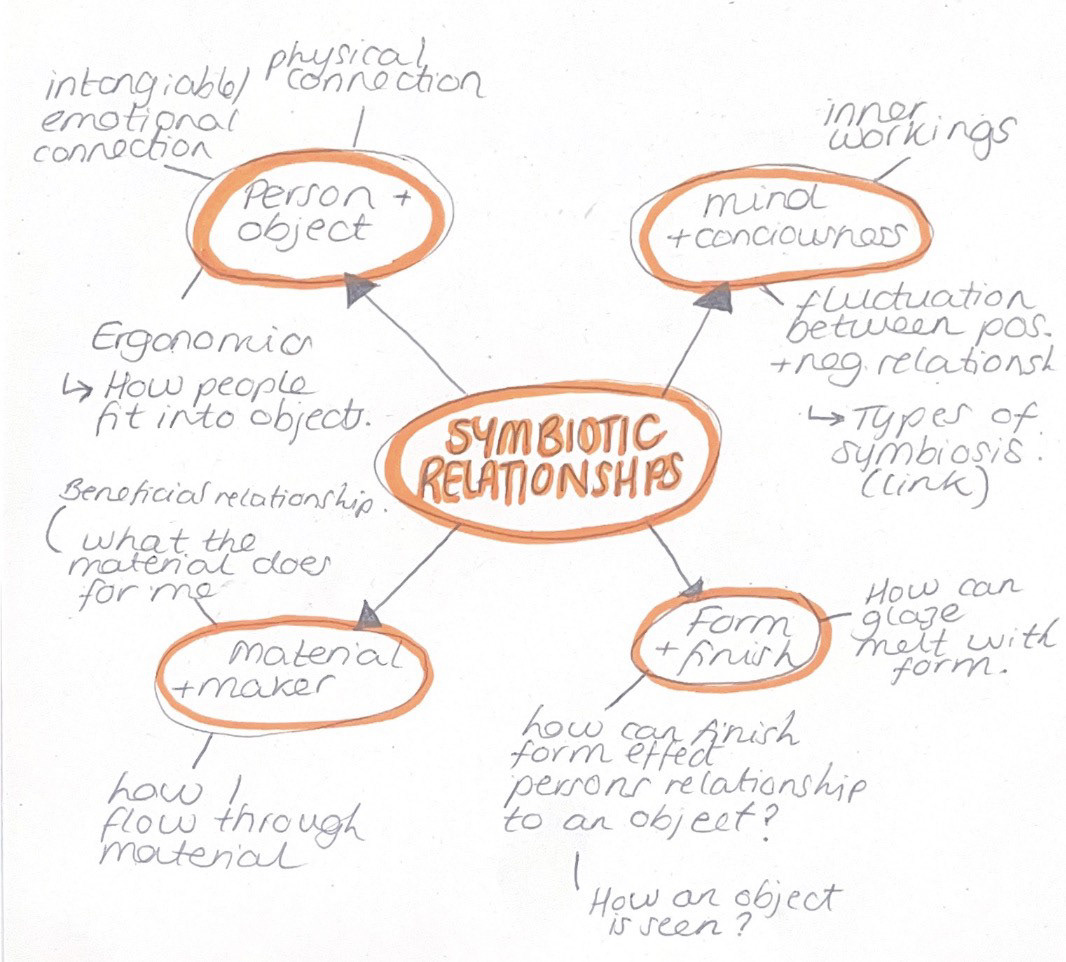 SYMBIOTIC
RELATIONSHIPS
Person +
object
physical
connection
intangiable/
emotional
connection
Ergonomic
↳ How people
fit into object.
mind
+conciowness
inner
workings
fluctuation
between pos.
+neg. relationsh
↳ Types of
symbiosis.
(link)
material
+maker
Beneficial relationship.
what the
material does
for me
how I
flow through
material
Form
+ finish
How can
glaze
melt with
form.
how can finish
form effect
persons relationship
to an object?
How an object
is seen?